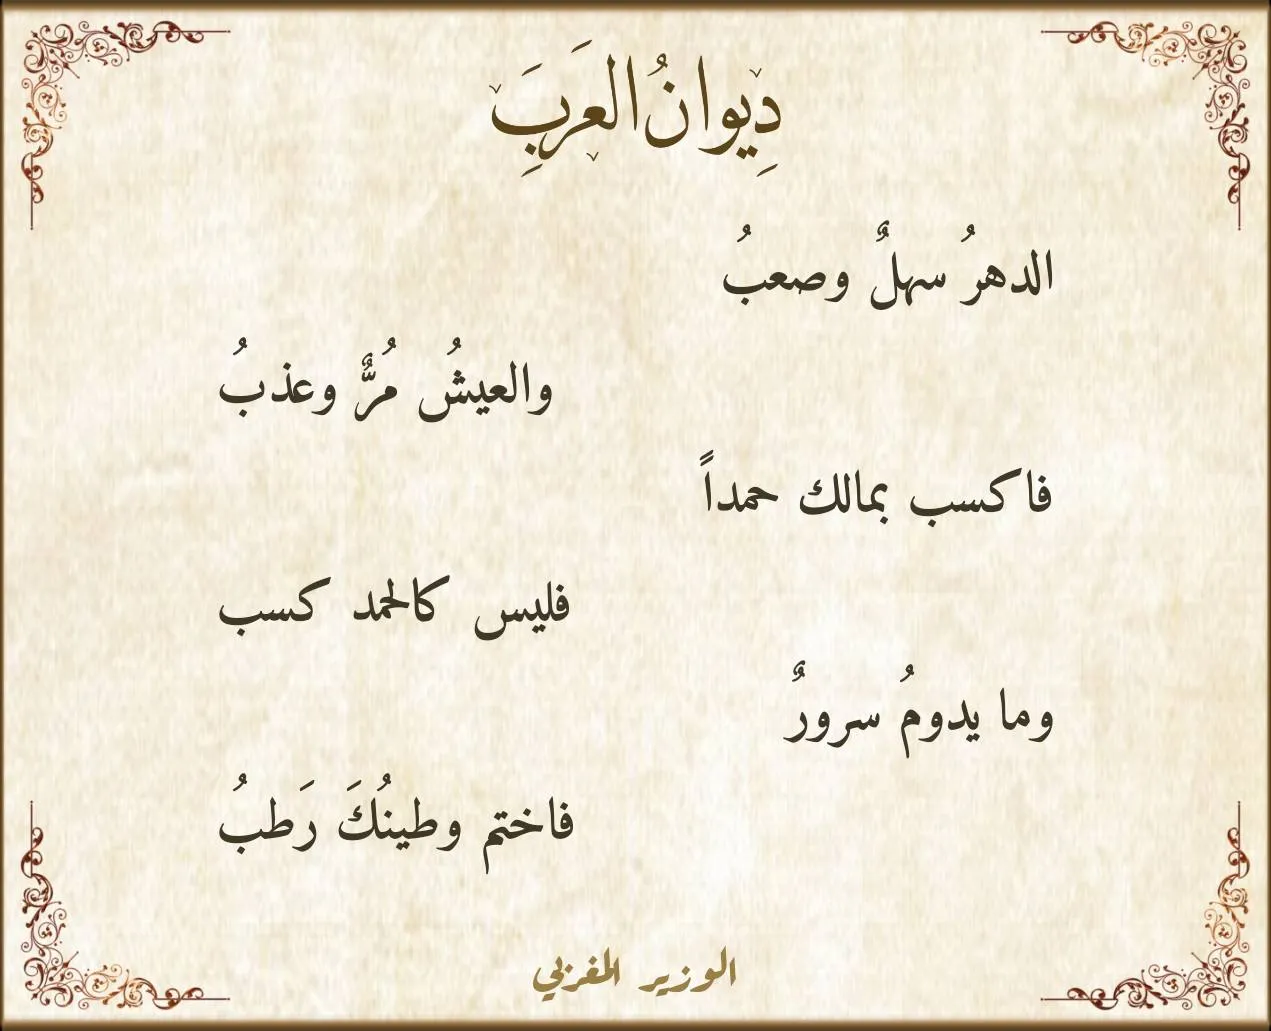 دِيوانُ العَربَِ
الدهرُ سهلٌ وصعبُ
والعيشُ مُرٌّ وعذبُ
فاكسب بمالك حمداً
فليس كالحمد كسب
وما يدومُ سرورٌ
فاختم وطينُكَ رَطبُ
الوزير المغربي